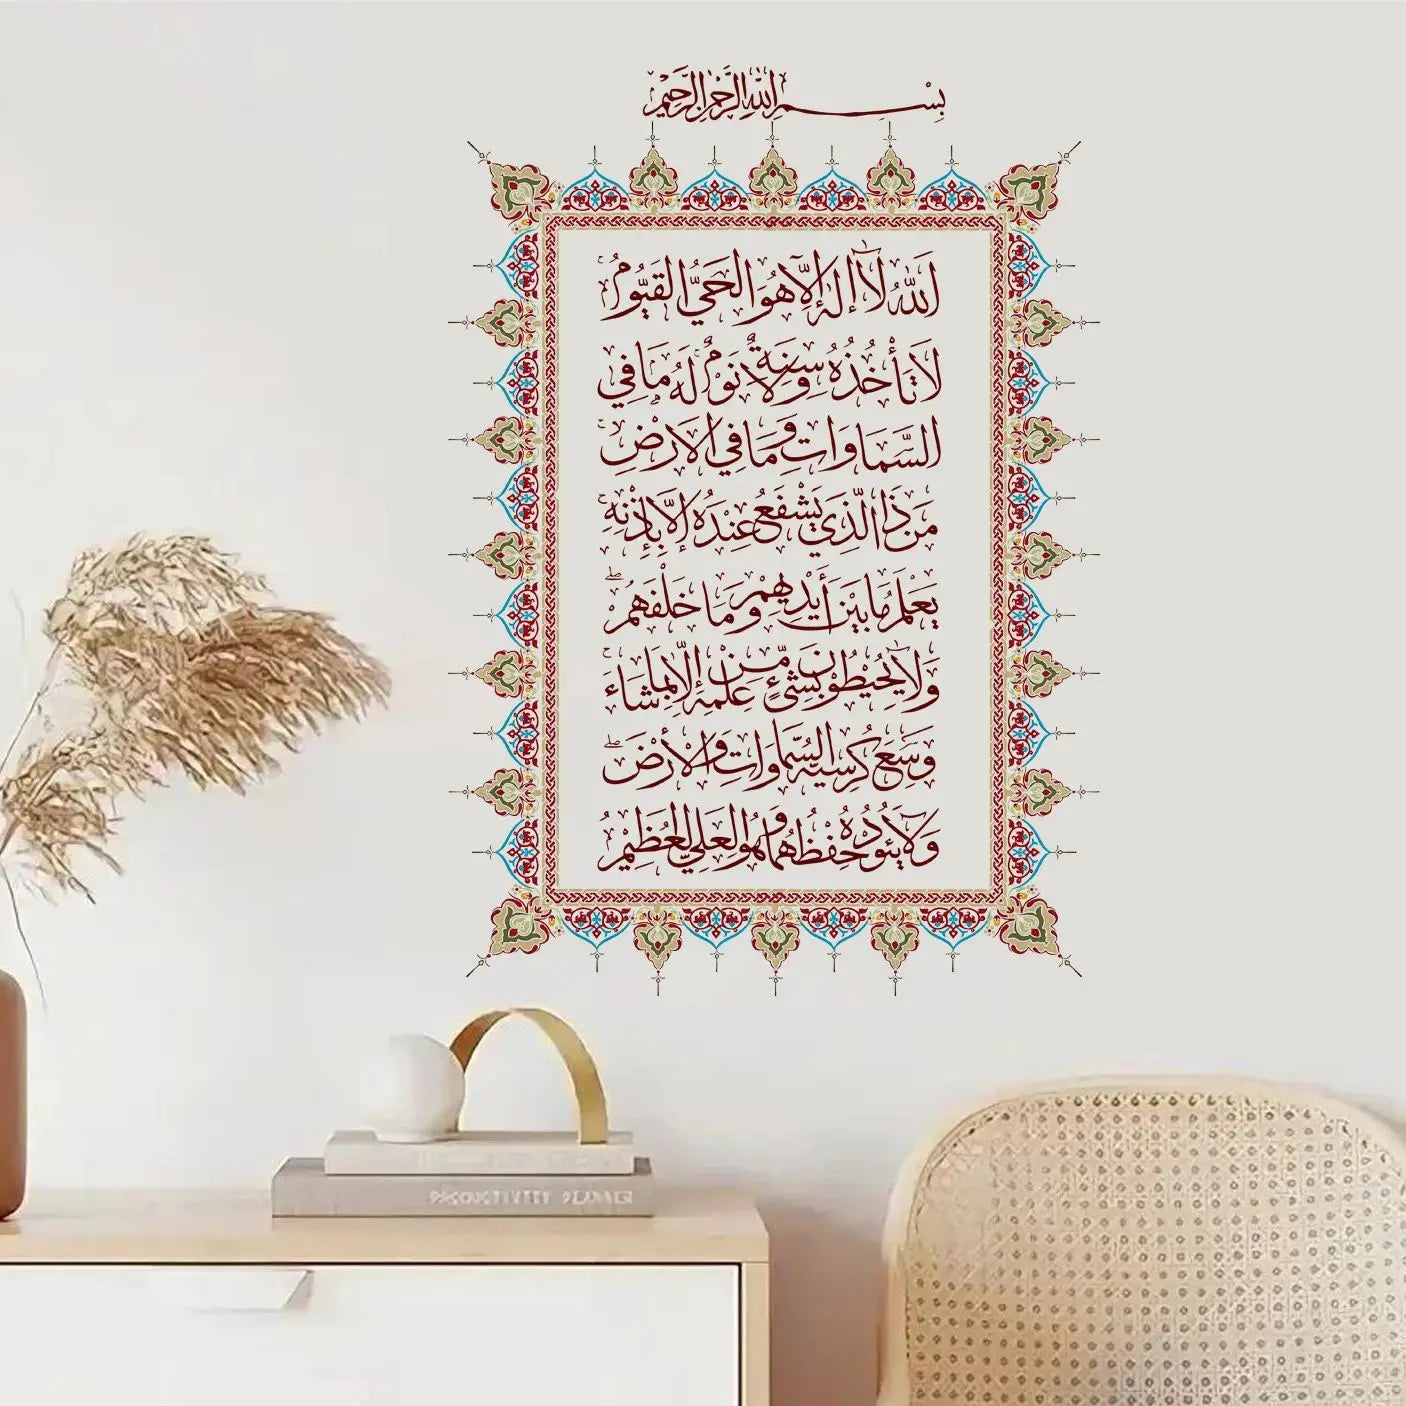 بِسْمِ اللّٰهِ الرَّحْمٰنِ الرَّحِيْمِ
اَللّٰهُ لَآ اِلٰهَ اِلَّا هُوَ الْحَيُّ الْقَيُّوْمُ ۚ
لَا تَأْخُذُهُ سِنَةٌ وَلَا نَوْمٌ ۚ لَهُ مَا فِي
السَّمَاوَاتِ وَمَا فِي الْاَرْضِ ۚ
مَنْ ذَا الَّذِي يَشْفَعُ عِنْدَهُ إِلَّا بِإِذْنِهِ ۚ
يَعْلَمُ مَا بَيْنَ أَيْدِيهِمْ وَمَا خَلْفَهُمْ ۖ
وَلَا يُحِيْطُوْنَ بِشَيْءٍ مِّنْ عِلْمِهِ إِلَّا بِمَا شَاءَ ۚ
وَسِعَ كُرْسِيُّهُ السَّمَاوَاتِ وَالْأَرْضَ ۖ
وَلَا يَئُودُهُ حِفْظُهُمَا وَهُوَ الْعَلِيُّ الْعَظِيْمُ
PRODUCTIVITY PLANNER